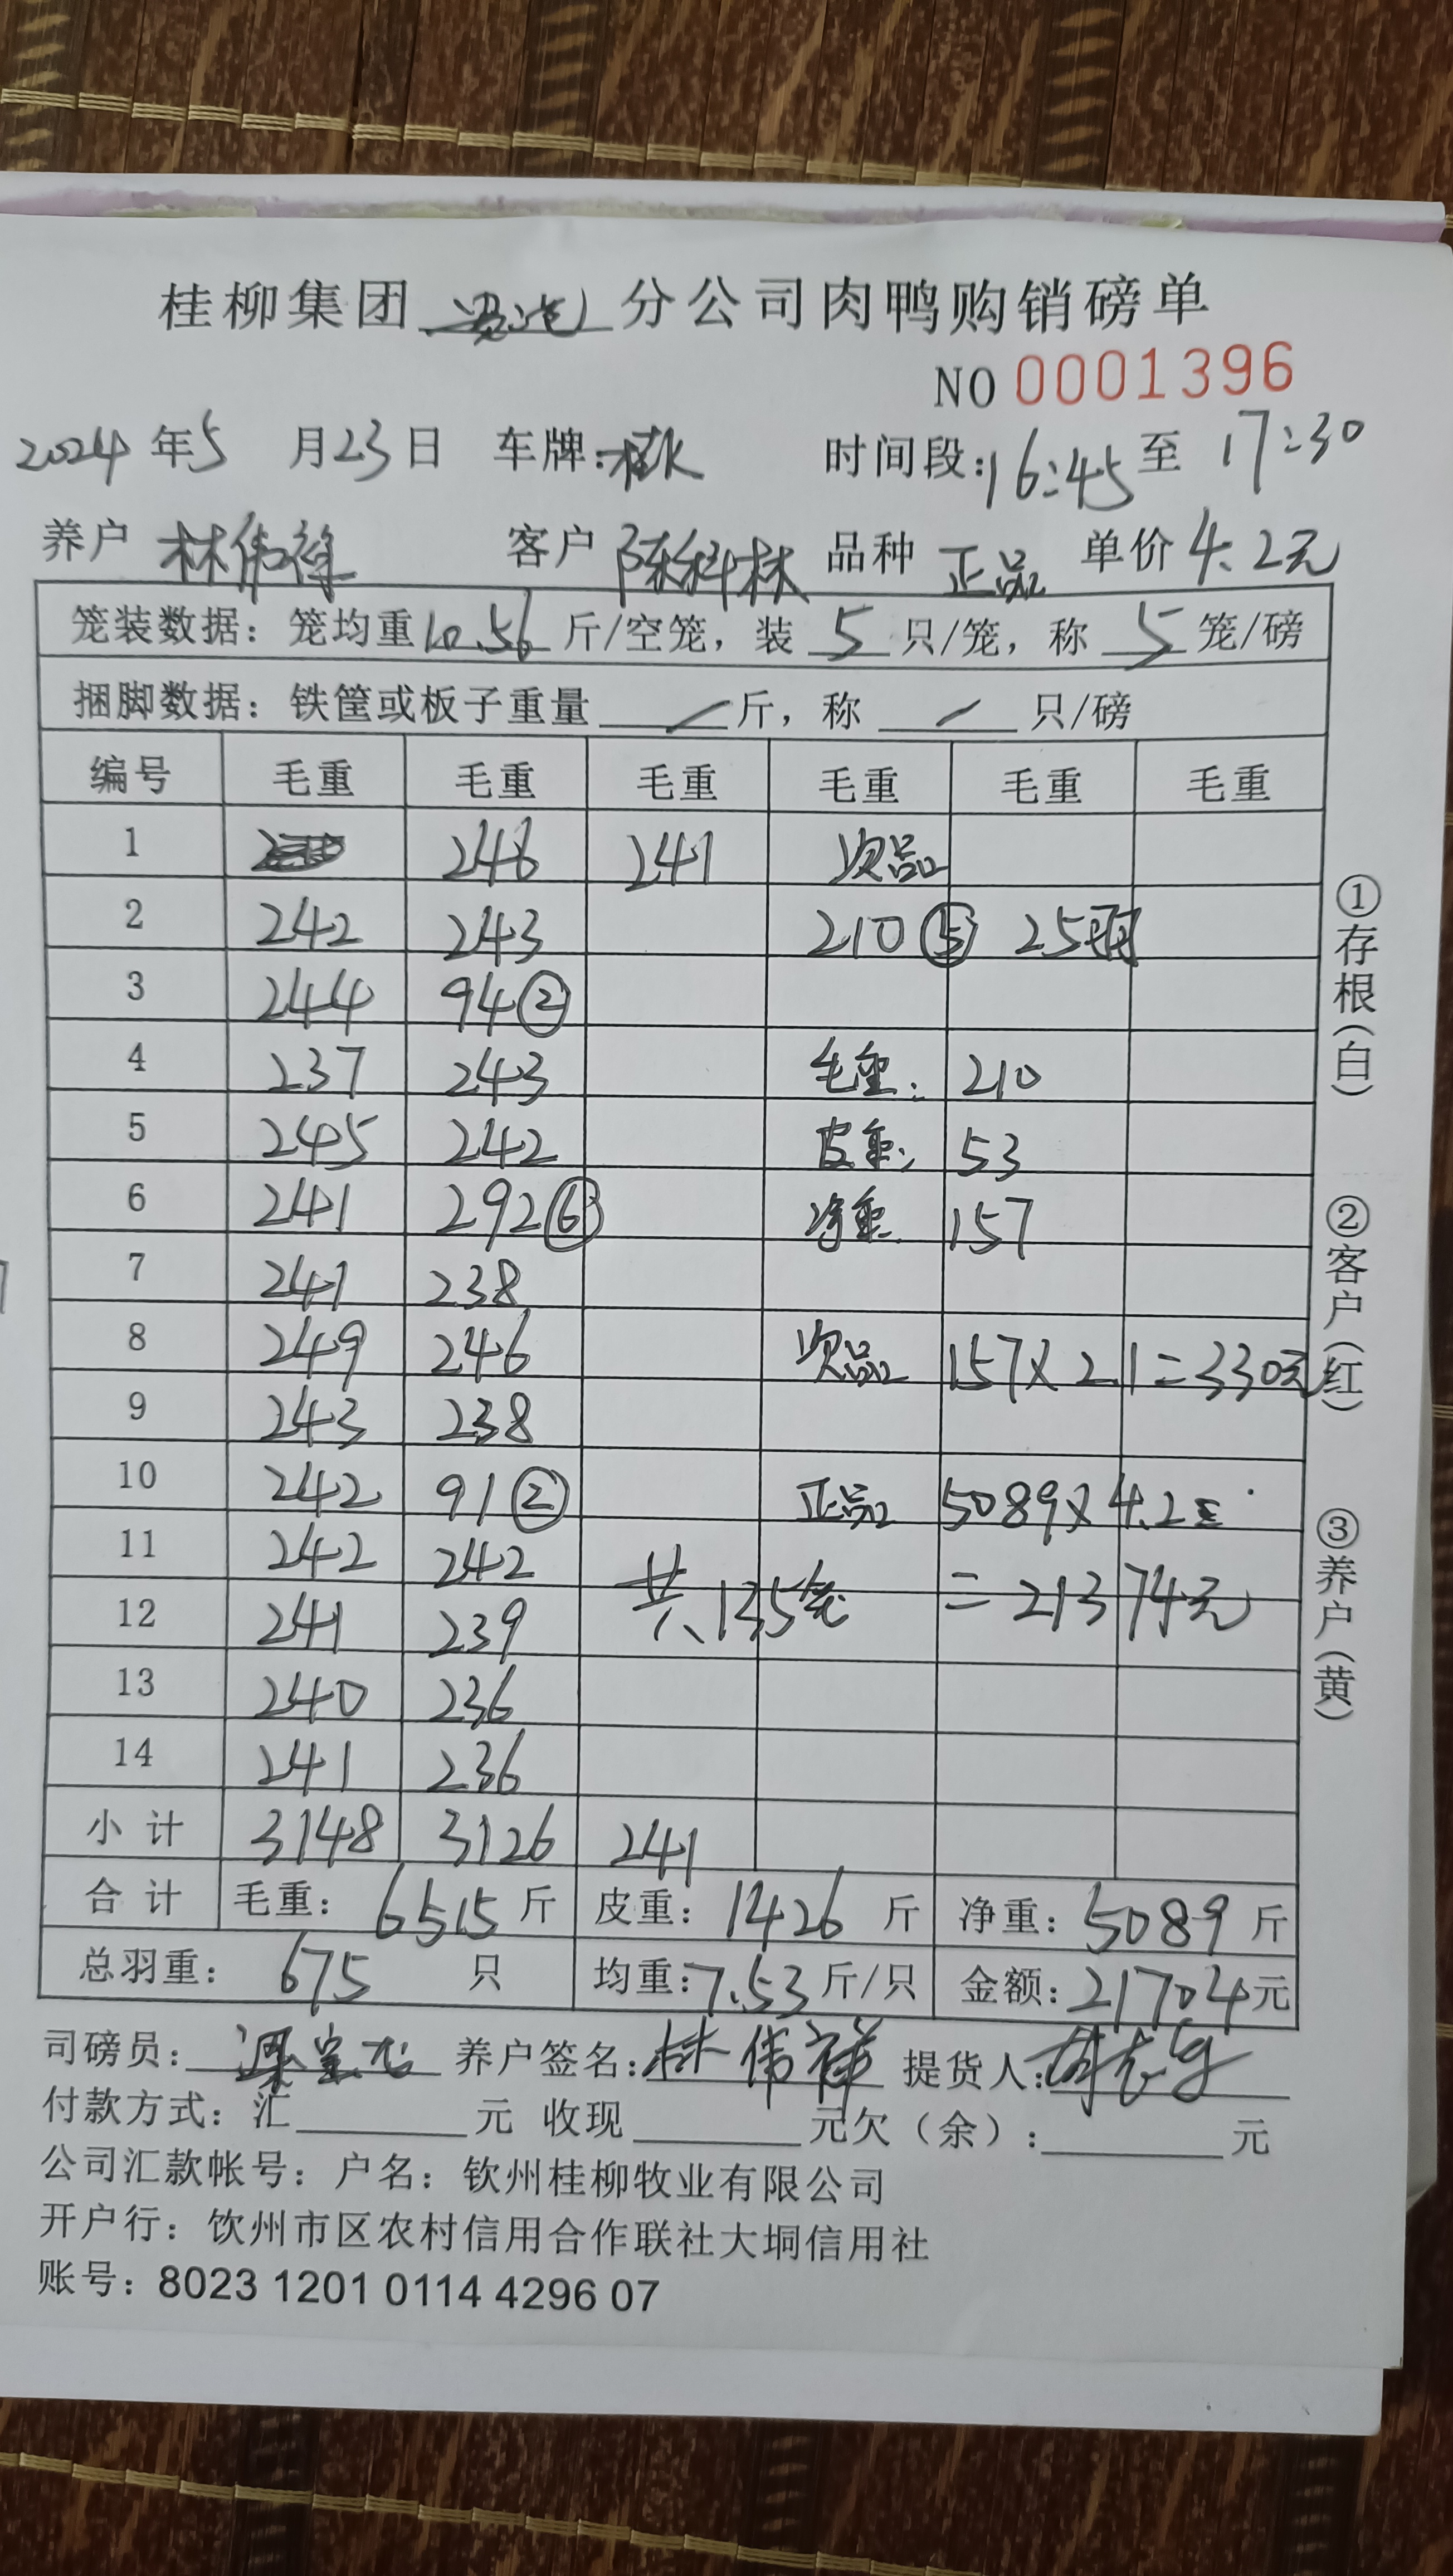 桂柳集团 分公司肉鸭购销磅单
NO 0001396
2024 年 5 月 23 日 车牌: 时间段: 16:45 至 17:30
养户 林伟祥 客户 陈科林 品种 正品 单价 4.2元
笼装数据：笼均重 10.56 斤/空笼，装 5 只/笼，称 5 笼/磅
捆脚数据：铁筐或板子重量 / 斤，称 / 只/磅
编号 毛重 毛重 毛重 毛重 毛重 毛重
1 246 241 次品
2 242 243 210 ⑤ 25羽
3 244 94 ②
4 237 243 毛重: 210
5 245 242 皮重: 53
6 241 292 ⑥ 净重: 157
7 241 238
8 249 246 次品 157×2.1=330元
9 243 238
10 242 91 ② 正品 5089×4.2元
11 242 242 共135笼 =21374元
12 241 239
13 240 236
14 241 236
小计 3148 3126 241
合计 毛重: 6515 斤 皮重: 1426 斤 净重: 5089 斤
总羽重: 675 只 均重: 7.53 斤/只 金额: 21704 元
司磅员: 养户签名: 林伟祥 提货人:
付款方式: 汇 元 收现 元欠（余）: 元
公司汇款帐号: 户名: 钦州桂柳牧业有限公司
开户行: 饮州市区农村信用合作联社大垌信用社
账号: 8023 1201 0114 4296 07
①存根（白）
②客户（红）
③养户（黄）